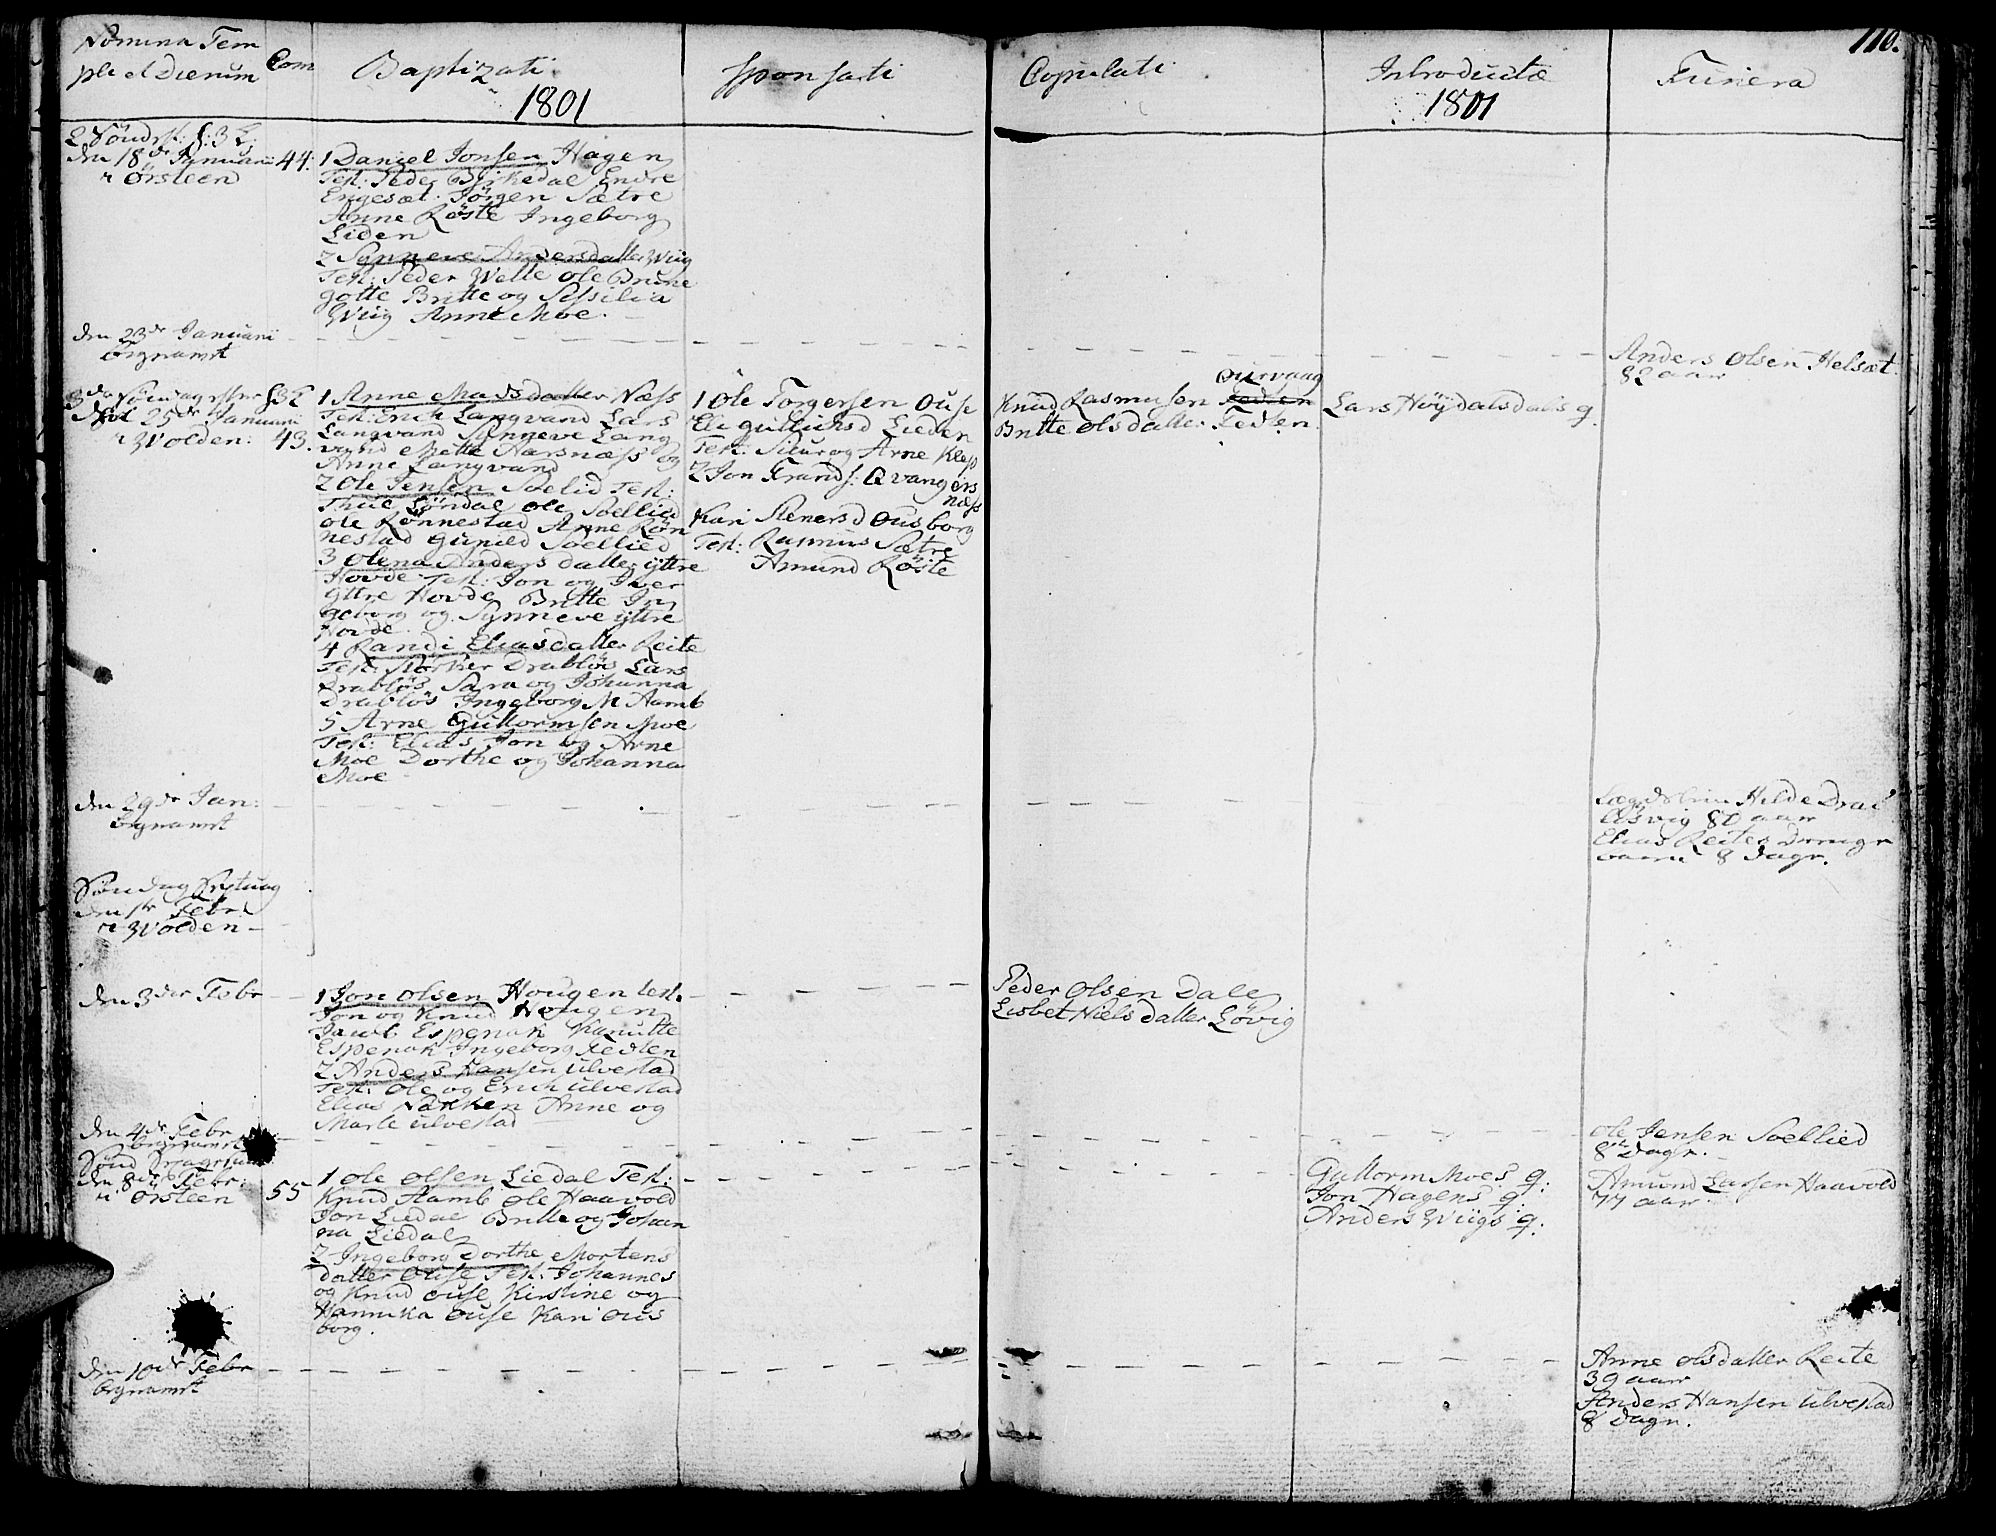 110.
Nomina Tem
pli et Dierum
Com
Baptizati
1801
Sponsati
Copulati
Introductæ
1801
Funera
2 Søndag f: 3 K
den 18de Januari
i Ørsteen
44.
1 Daniel Jonsen Hagen
Test: Peder Birkedal Endre
Engesæt Jørgen Sætre
Anne Røste Ingeborg
Liden
2 Synneve Andersdatter Wiig
Test: Peder Welle Ole Brune
gotte Britte og Sissilia
Wiig Anne Moe.
den 23de Januari
begravet
Anders Olsen Helsæt
82 aar
3 Søndag efter H 3 K
den 25de Januari
i Wolden:
43.
1 Anne Madsdatter Næss
Test: Erich Langvand Lars
Langvand Synneve Lang
vand Mette Aarsnæss og
Anne Langvand
2 Ole Jensen Soelid Test:
Thue Løndal Ole Soelied
Ole Rønnestad Anne Røn
nestad Gunild Soellied
3 Olena Anders datter yttre
Hovde Test: Jon og Iver
yttre Hovde Britte In
geborg og Synneve yttre
Hovde.
4 Randi Eliasdatter Reite
Test: Størker Drabløs Lars
Drabløs Sara og Johanna
Drabløs Ingeborg M Aamb
5 Arne Guttormsen Moe
Test: Elias Jon og Arne
Moe Dorthe og Johanna
Moe
1 Ole Torgersen Ouse
Eli Gullichsd Lieden
Test: Siur og Arne Klep
2 Jon Frands: Qvangers
næss
Kari Stenersd Ousborg
Test: Rasmus Sætre
Amund Røste
Ourvaag
Knud Rasmusen Fedten
Britte Olsdatter Fedten.
Lars Høydalsdals q.
den 29de Jan:
begravet
Hilde Dral
løsvig 80 aar
Elias Reites Drenge
barn 8 dage.
Søndag
den 1te Febr
i Wolden
den 3die Febr
1 Jon Olsen Hougen test.
Jon og Knud Hougen
Jacob Espenak Knutte
Espenak Ingeborg Fedten
2 Anders Hansen Ulvestad
Test: Ole og Erich Ulvestad
Elias Nakken Anne og
Marte Ulvestad
Peder Olsen Dale
Lisbet Niels datter Løvig
den 4de Febr
begravet
Ole Jensen Soellied
8te dage.
Sønd
den 8de Febr:
i Ørsteen
55
1 Ole Olsen Liedal Test:
Knud Aamb Ole Haavold
Jon Liedal Britte og Johan
na Liedal
2 Ingeborg Dorthe Mortens
datter Ouse Test: Johannes
og Knud Ouse Kirstine og
Hannika Ouse Kari Ous
borg.
Guttorm Moes q.
Jon Hagens q.
Anders Wiigs q.
Amund Larsen Haavold
77 aar
den 10de Febr
begravet
Anne Olsdatter Reite
39 aar
Anders Hansen Ulvestad
8 dage.